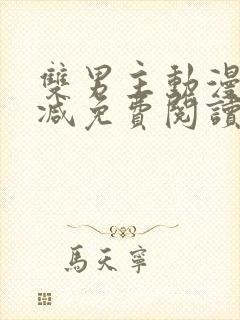 雙男主動漫
減免費閱讀
馬天寧